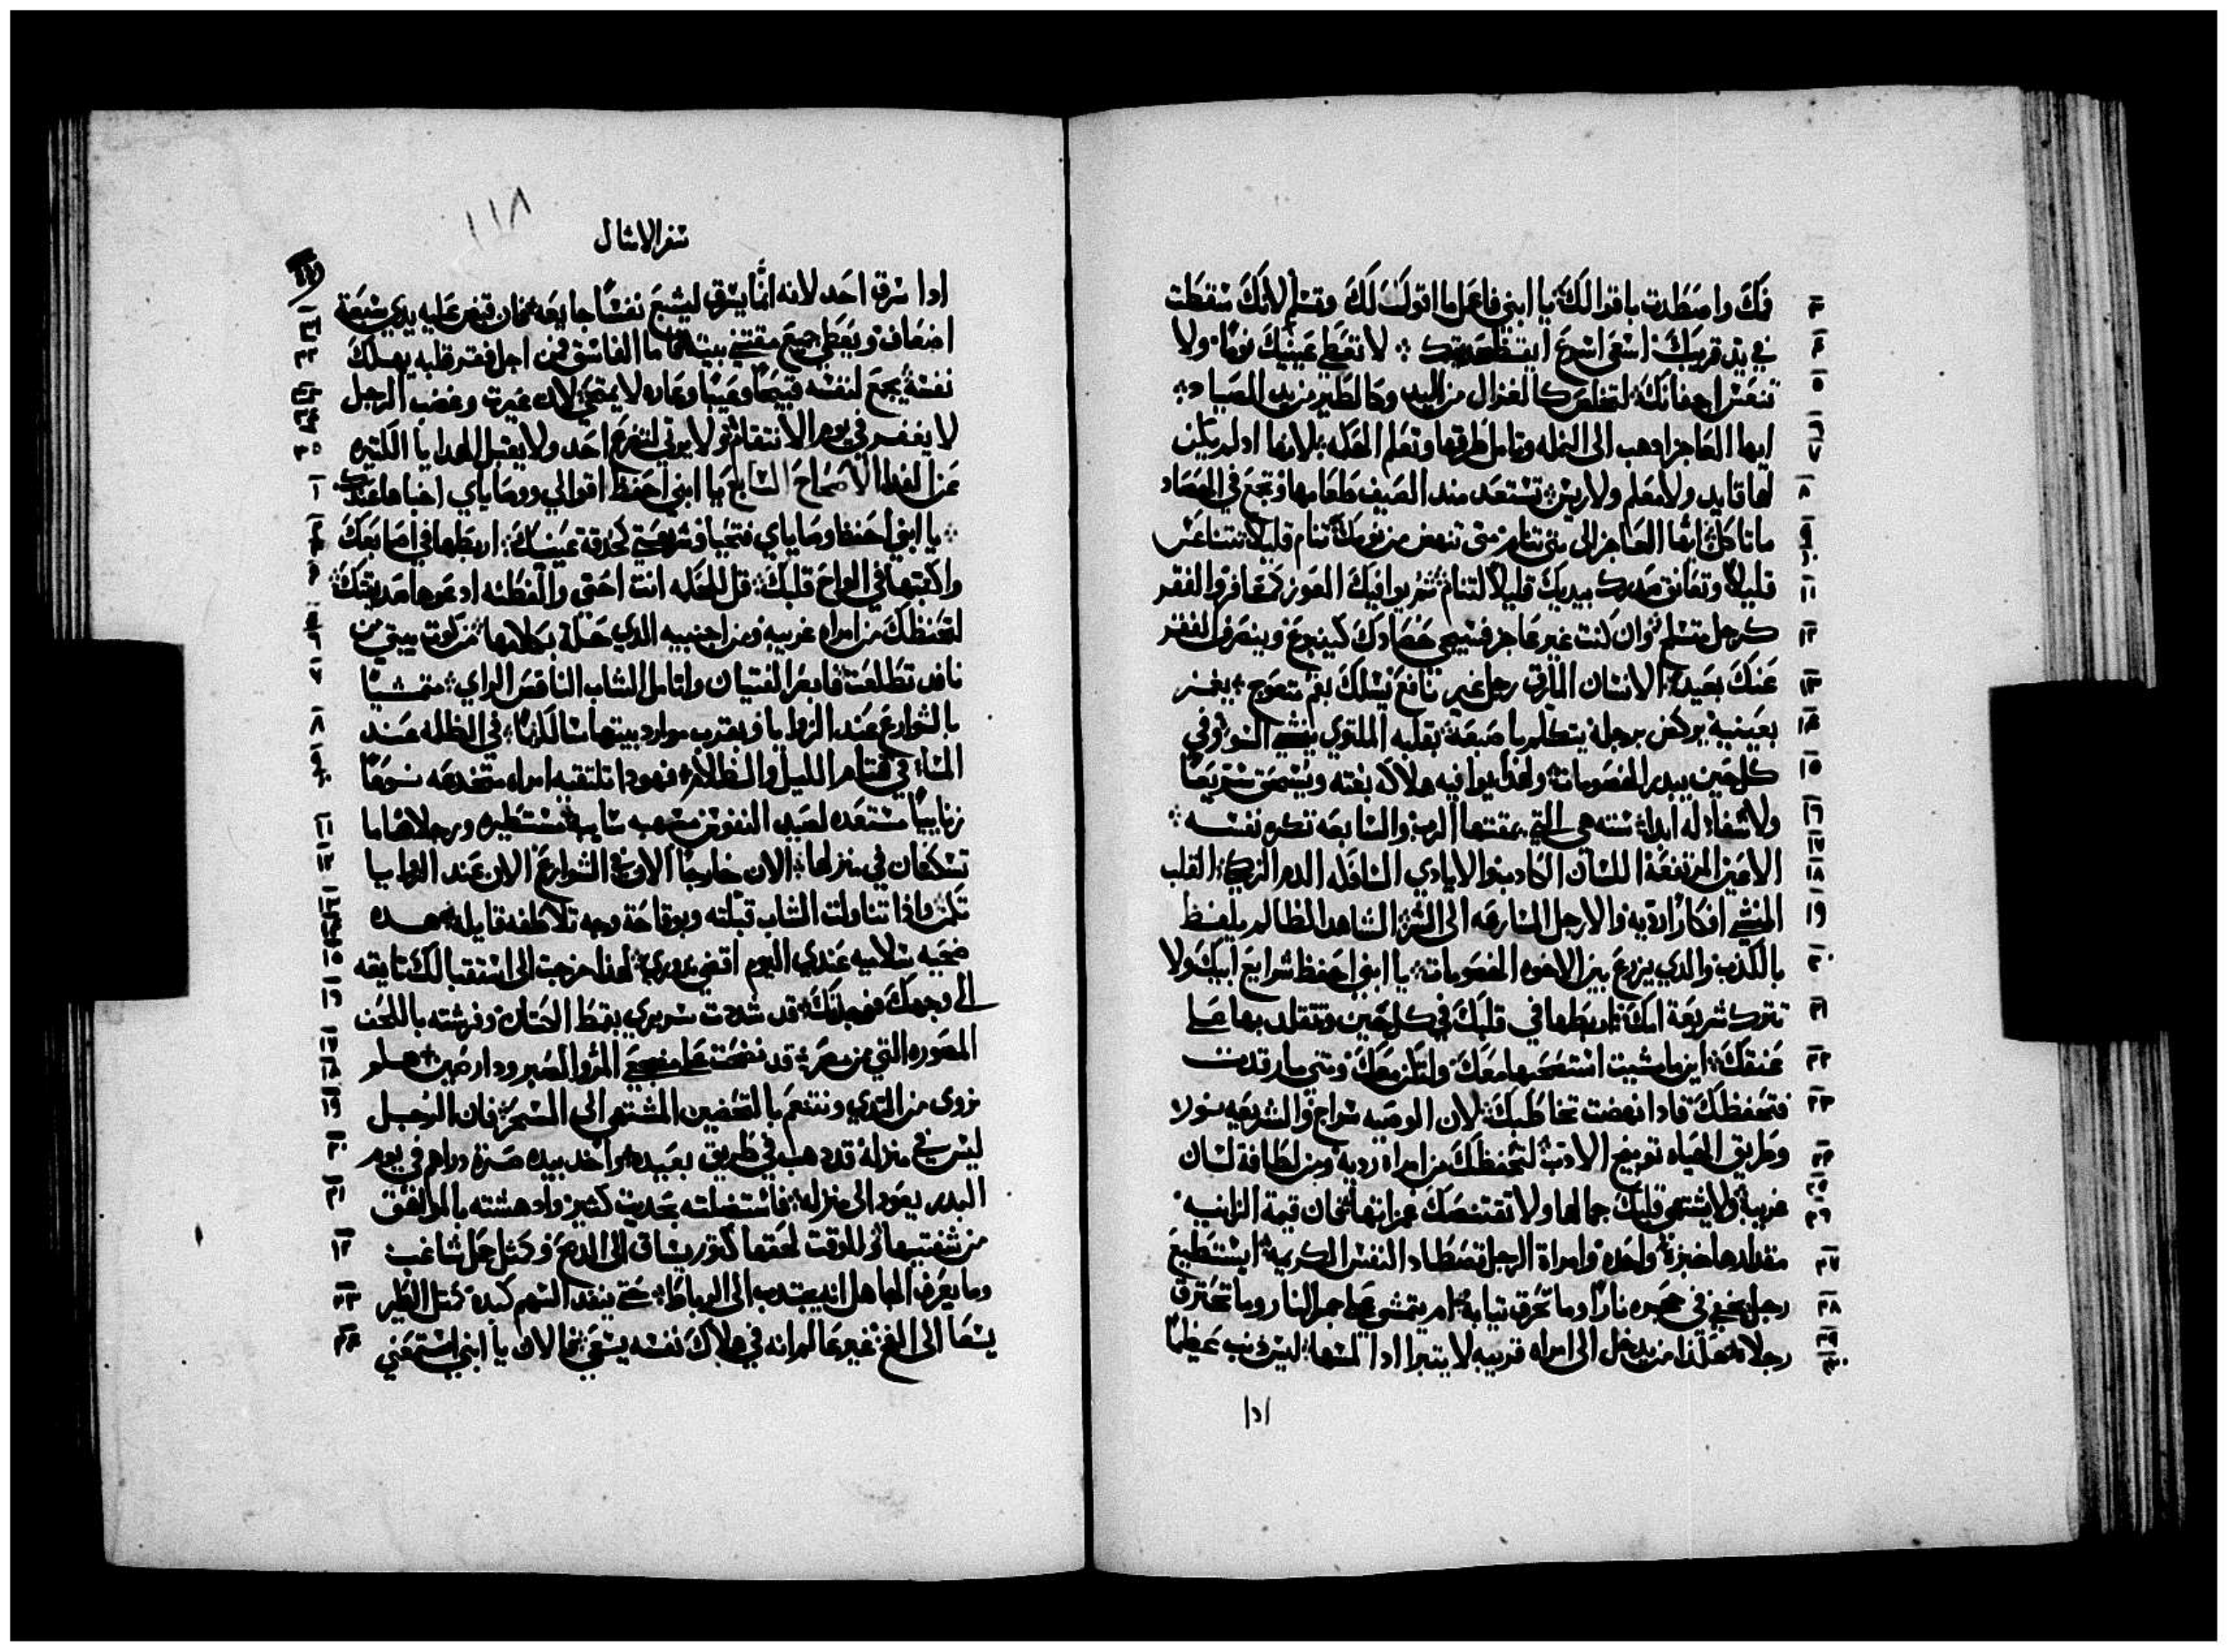 فمك واصطدت باقوالك يا ابني فاعمل ما اقول لك وتسلم لانك سقطت
في يد قريبك اسعى اسرع ايقظ صديقك لا تعطي عينيك نومًا ولا
تنعس اجفانك لتخلص كالغزال من اليد وكالطير من يد الصياد
ايها العاجز ادهب الى النمله وتامل طرقها وتعلم الحكمه لانها اد لم يكن
لها قايد ولا معلم ولا ريس تستعد مند الصيف طعامها وتجمع في الحصاد
ماتاكل ايها العاجز الى متى تنام متى تنهض من نومك تنام قليلا تتناعس
قليلا وتعانق صدرك بيديك قليلا لتنام ثم يوافيك العوز كمسافر والفقر
كرجل متسلم وان كنت غير عاجز فسيجي حصادك كينبوع وينصرف الفقر
عنك بعيدًا الانسان المارق رجل غير نافع يسلك بفم متعوج يغمز
بعينيه يركض برجله يتكلم باصبعه بقلبه الملتوي ينشي السو وفي
كل حين يبدر الخصومات ولهذا يوافيه هلاكه بغته وينسحق سريعًا
ولا شفا له ابدًا سته هي التي يمقتها الرب والسابعه تكره نفسه
الاعين المرتفعة اللسان الكادب والايادي السافكه الدم الزكي القلب
المنشي افكارًا رديه والارجل المسارعه الى الشر الشاهد الظالم يلفظ
بالكذب والدي يزرع بين الاخوه الخصومات يا ابني احفظ شرايع ابيك ولا
تترك شريعة امك اربطها في قلبك في كل حين وتتقلد بها على
عنقك اينما مشيت استصحبها معك ولتكن معك ومتى ما رقدت
فتحفظك فادا نهضت تخاطبك لان الوصيه سراج والشريعه نور
وطريق الحياه توبيخ الادب لتحفظك من امراه رديه ومن لطافة لسان
غريبة ولا يشتهي قلبك جمالها ولا تقتنصك غمزاتها فان قيمة الزانيه
مقدارها خبزة واحده وامراة الرجل تصطاد النفس الكريمه ايستطيع
رجل يخفي في حجره نارًا وما تحرق ثيابه ام يتمشى على جمر النار وما تحترق
رجلاه هكذا من يدخل الى امراه قريبه لا يتبرا ادا لمسها ليس دنب عظيمًا
ادا
١١٨
سفر الامثال
ادا سرق احد لانه انما يسرق ليشبع نفسًا جايعه فان قبض عليه يودي سبعة
اضعاف ويعطي جميع مقتنى بيته اما الفاسق فمن اجل فقر قلبه يهلك
نفسه يجمع لنفسه قبيحًا وعيبًا وعاره لا يمتحي لان غيرت وغضب الرجل
لا يغفر في يوم الانتقام ولا يوتى لتضرع احد ولا يقبل الهدايا الكتيره
عن الفدا الاصحاح السابع يا ابني احفظ اقوالي ووصاياي اخباها عندك
يا ابني احفظ وصاياي فتحيا وشريعتي كحدقة عينيك اربطها في اصابعك
واكتبها في الواح قلبك قل للحكمه انت اختي والفطنه ادعوها صديقتك
لتحفظك من امراه غريبه ومن اجنبيه الدي حلة بكلامها من كوت بيتي من
نافده تطلعت فابصر الفتيان واتامل الشاب الناقص الراي متمشيًا
بالشوارع عند الزوايا وبقرب موارد بيتها سالكًا في الظلمه عند
المسا في قتام الليل والظلام فهودا تلتقيه امراه متخدعه نسوعًا
زنابيًا مستعده لصيد النفوس مصهبه سايبه مستطيره ورجلاها ما
تسكنان في منزلها الان خارجًا الان في الشوارع الان عند الزوايا
تكمن وادا تناولت الشاب قبلته وبوقاحة وجه تلاطفه قايله هده
ضحيه سلاميه عندي اليوم اقضي ندوري لهذا خرجت الى استقبالك تايقه
الى وجهك فوجدتك قد شددت سريري بقمط الكتان وفرشته باللحف
المصوره التي من مصر قد نضحت على مضجعي المر والصبر ودار صين هلم
نروى من التدي ونتنعم بالتحضين المشتهي الى السحر فان الرجل
ليس في منزله قد دهب في طريق بعيده واخد بيده صرة دراهم في يوم
البدر يعود الى منزله فاستضلته بحديث كثير وادهشته بالموالقق
من شفتيها وللوقت لحقها كتور يساق الى الدبح وكمثل حمل شاغب
وما يعرف الجاهل انه يجتدب الى الرباط حتى ينفد السهم كبده كمثل الطير
يسعا الى الفخ غير عالم انه في هلاك نفسه يسعى فالان يا ابني استمعني